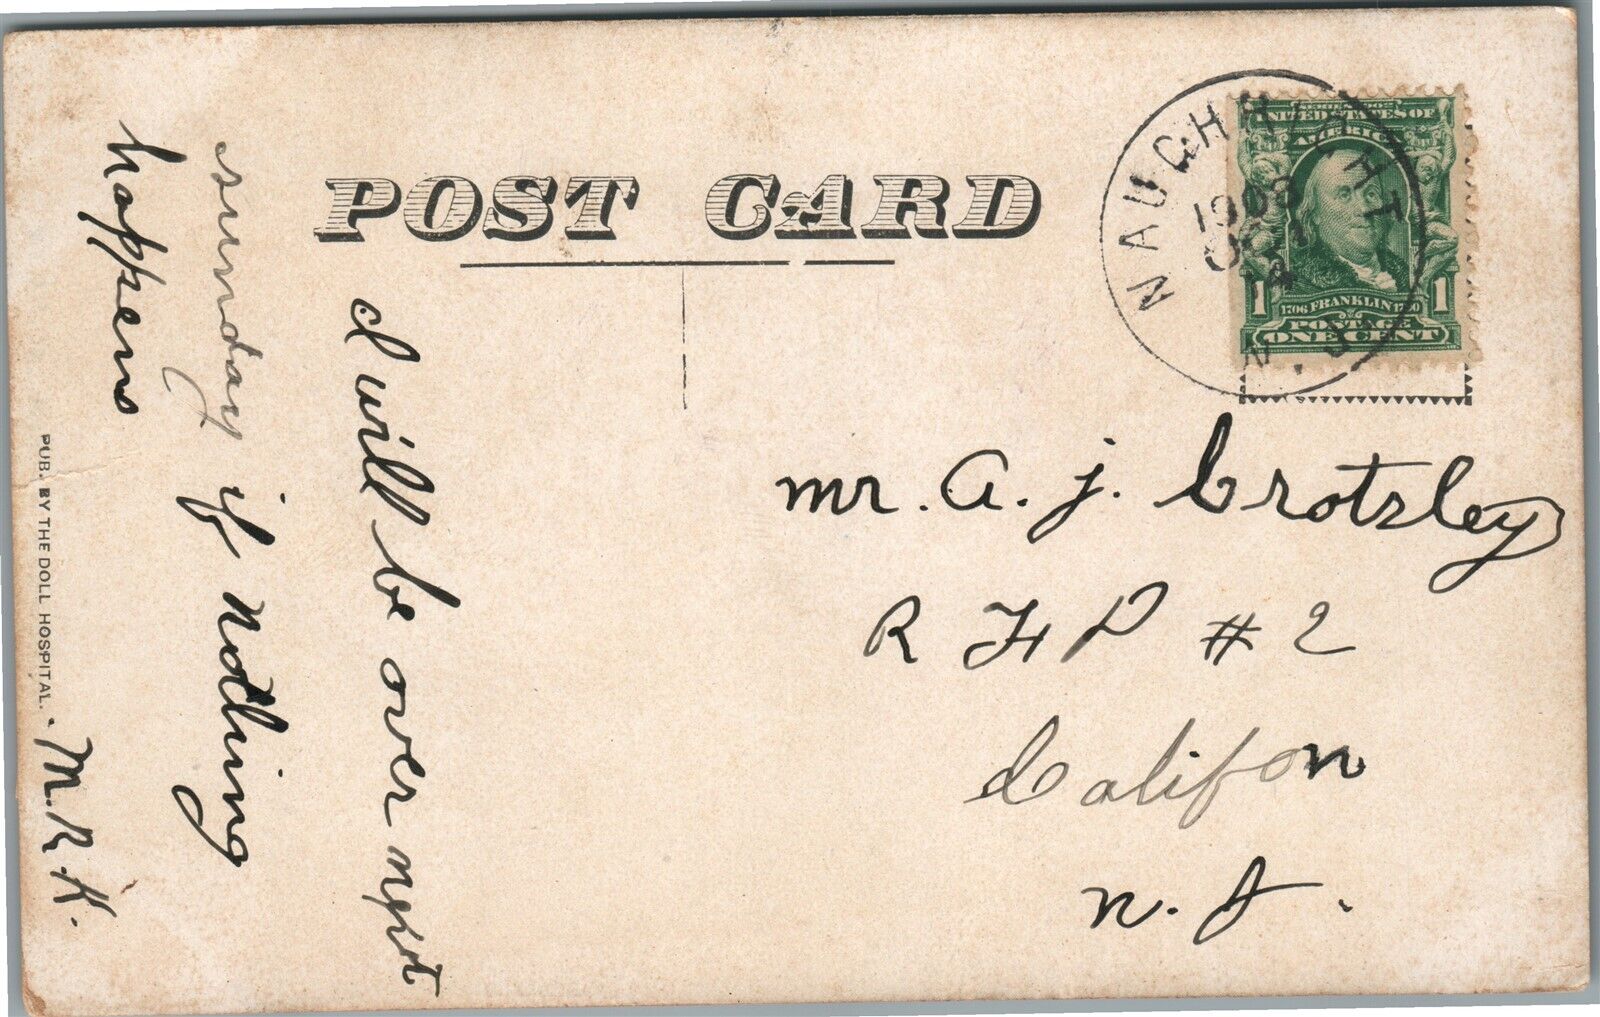 POST CARD
NAUGHRIGHT
1908
14
N.J.
SERIES 1902
UNITED STATES OF
AMERICA
1 FRANKLIN 1
1706 1790
POSTAGE
ONE CENT
mr. A. J. Crotsley
R F D # 2
Califon
N. J.
I will be over next
sunday if nothing
happens
M. R. K.
PUB. BY THE DOLL HOSPITAL.